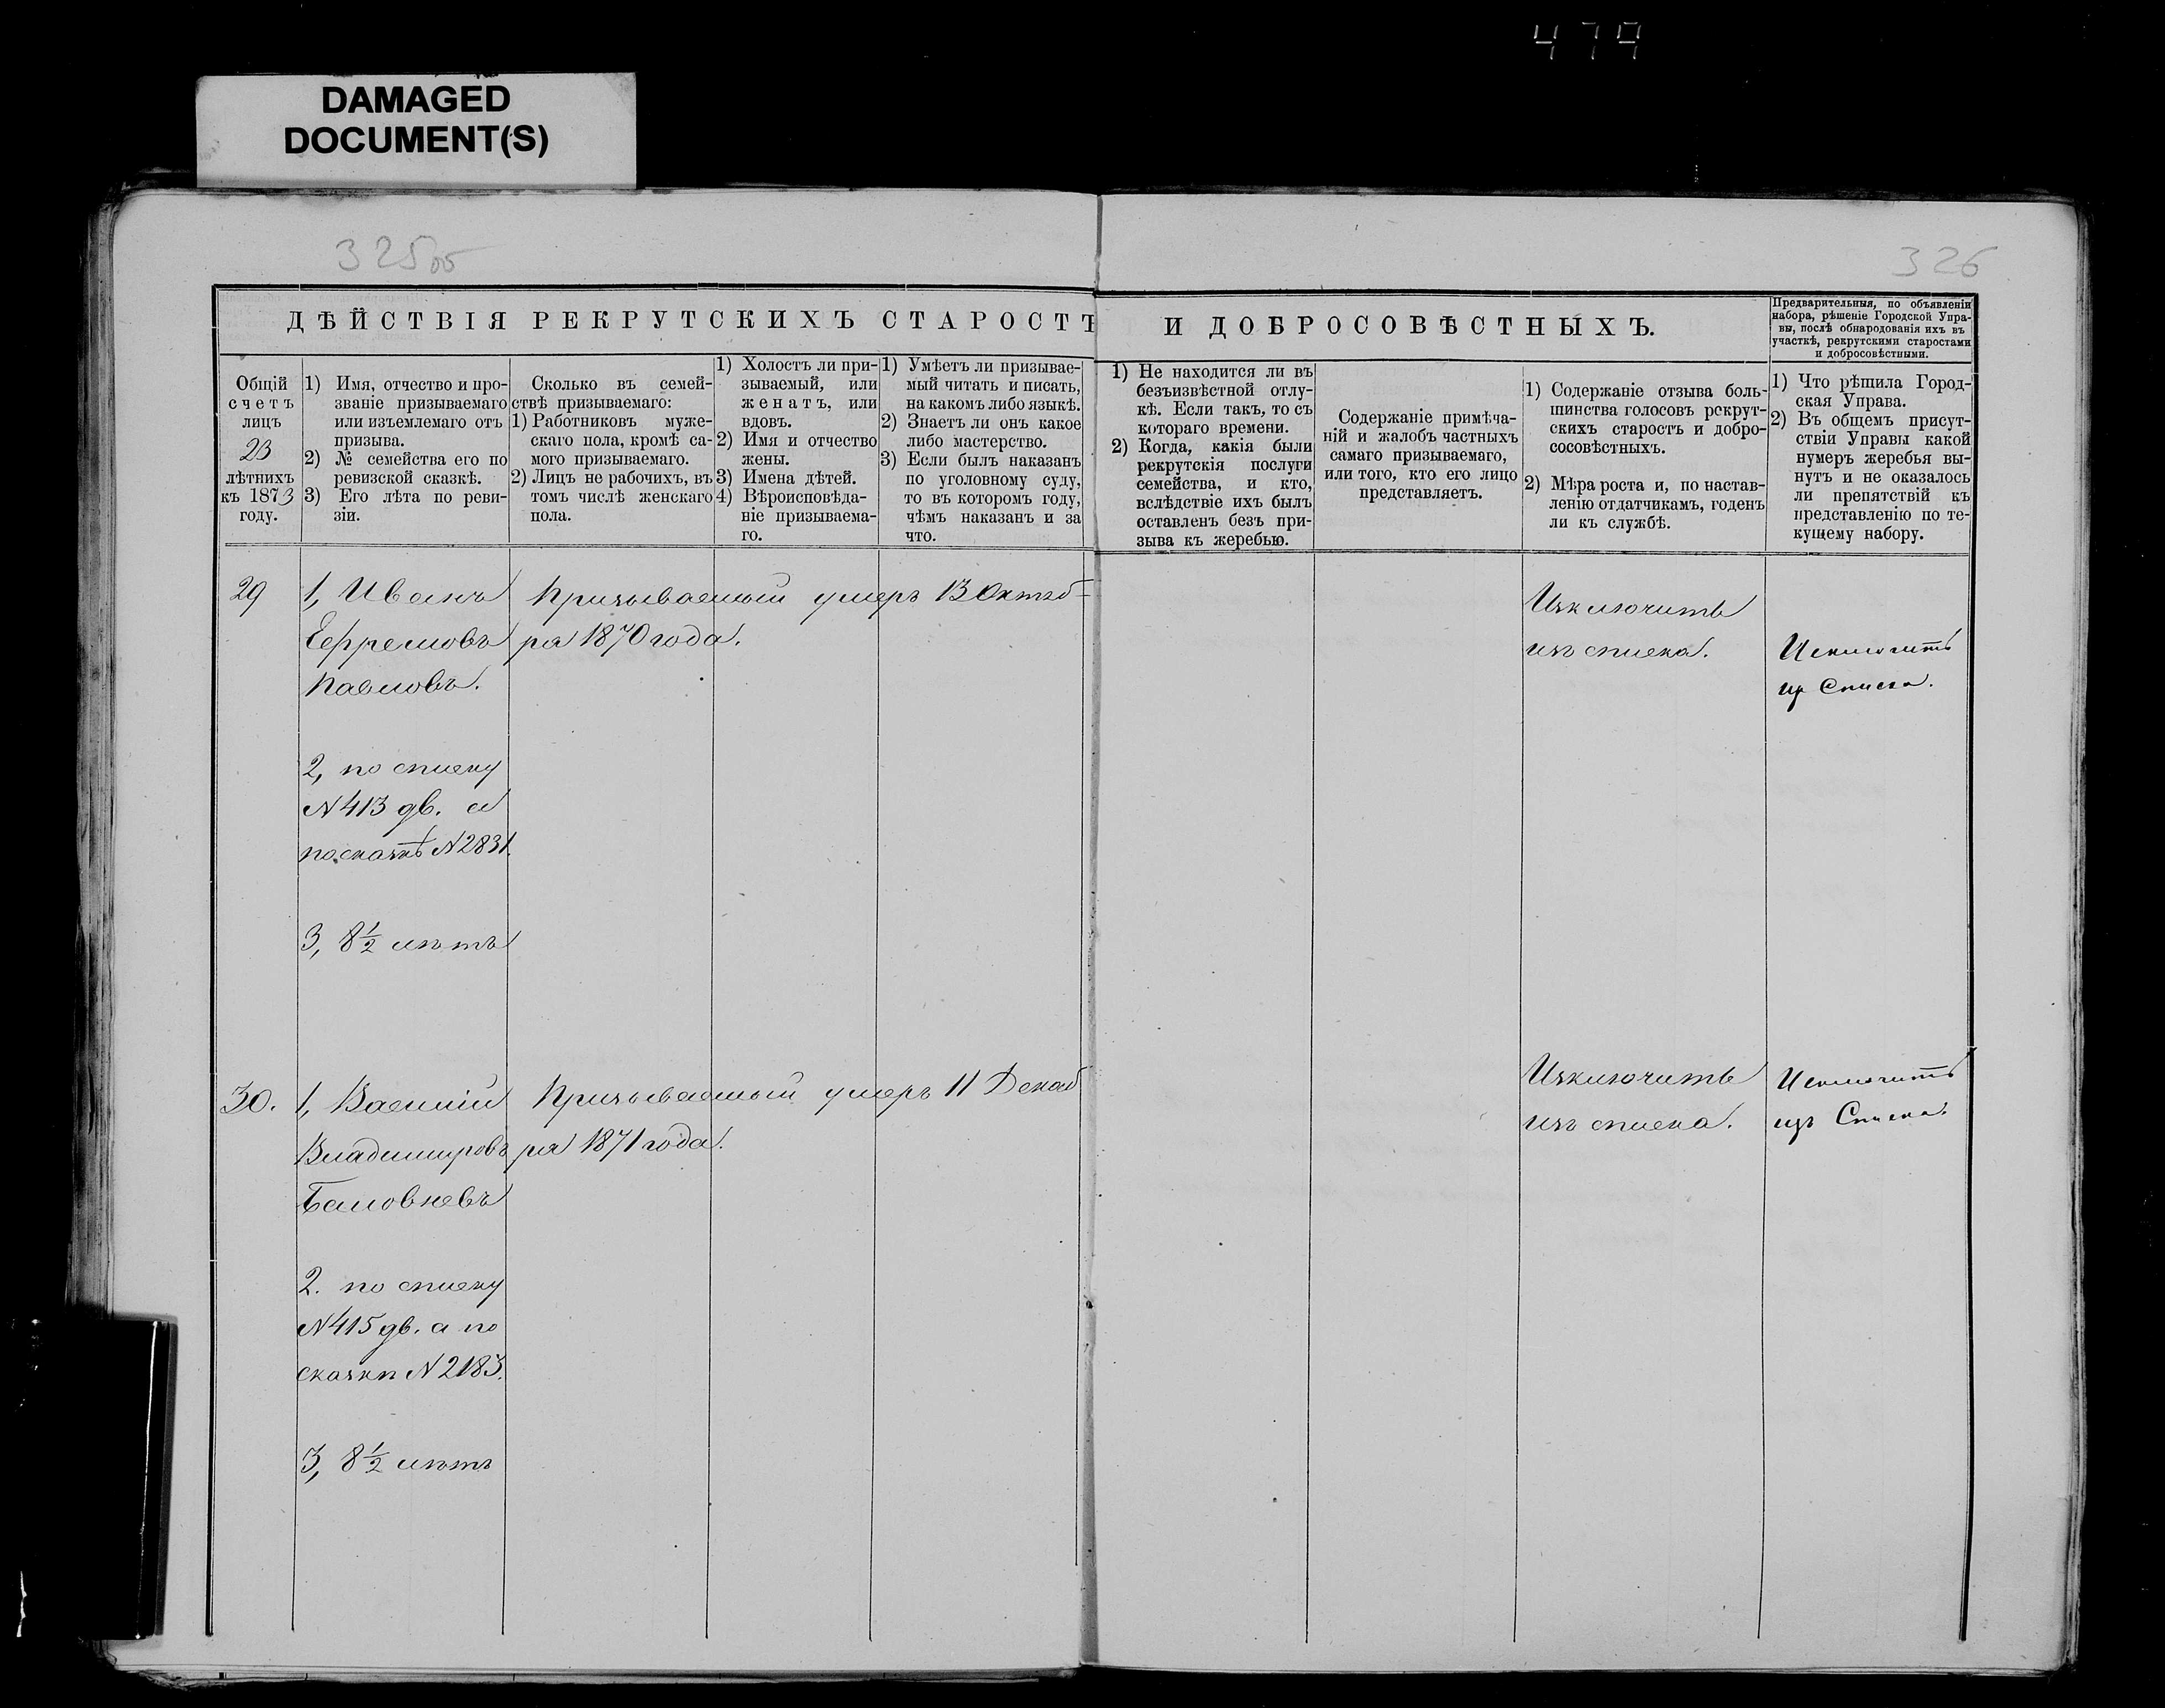 477
DAMAGED
DOCUMENT(S)
325об
326
ДѢЙСТВІЯ РЕКРУТСКИХЪ СТАРОСТЪ
И ДОБРОСОВѢСТНЫХЪ.
Предварительныя, по объявленіи
набора, рѣшеніе Городской Упра-
вы, послѣ обнародованія ихъ въ
участкѣ, рекрутскими старостами
и добросовѣстными.
Общій
счетъ
лицъ
23
лѣтнихъ
къ 1873
году.
1) Имя, отчество и про-
званіе призываемаго
или изъемлемаго отъ
призыва.
2) № семейства его по
ревизской сказкѣ.
3) Его лѣта по реви-
зіи.
Сколько въ семей-
ствѣ призываемаго:
1) Работниковъ муже-
скаго пола, кромѣ са-
мого призываемаго.
2) Лицъ не рабочихъ, въ
томъ числѣ женскаго
пола.
1) Холостъ ли при-
зываемый, или
женатъ, или
вдовъ.
2) Имя и отчество
жены.
3) Имена дѣтей.
4) Вѣроисповѣда-
ніе призываема-
го.
1) Умѣетъ ли призывае-
мый читать и писать,
на какомъ либо языкѣ.
2) Знаетъ ли онъ какое
либо мастерство.
3) Если былъ наказанъ
по уголовному суду,
то въ которомъ году,
чѣмъ наказанъ и за
что.
1) Не находится ли въ
безъизвѣстной отлу-
кѣ. Если такъ, то съ
котораго времени.
2) Когда, какія были
рекрутскія послуги
семейства, и кто,
вслѣдствіе ихъ былъ
оставленъ безъ при-
зыва къ жеребью.
Содержаніе примѣча-
ній и жалобъ частныхъ
самаго призываемаго,
или того, кто его лицо
представляетъ.
1) Содержаніе отзыва боль-
шинства голосовъ рекрут-
скихъ старостъ и добро-
сосовѣстныхъ.
2) Мѣра роста и, по настав-
ленію отдатчикамъ, годенъ
ли къ службѣ.
1) Что рѣшила Город-
ская Управа.
2) Въ общемъ присут-
ствіи Управы какой
нумеръ жеребья вы-
нутъ и не оказалось
ли препятствій къ
представленію по те-
кущему набору.
29
1, Иванъ
Ефремовъ
Павловъ.
2, по списку
№413 дв. а
по сказкѣ №2831.
3, 8½ лѣтъ
Призываемый умеръ 13 Октяб-
ря 1870 года.
Изключить
изъ списка.
Исключить
из Списка.
30.
1, Василій
Владимировъ
Баловневъ
2. по списку
№415 дв. а по
сказкѣ №2183.
3, 8½ лѣтъ
Призываемый умеръ 11 Декаб
ря 1871 года.
Изключить
изъ списка.
Исключить
изъ Списка.